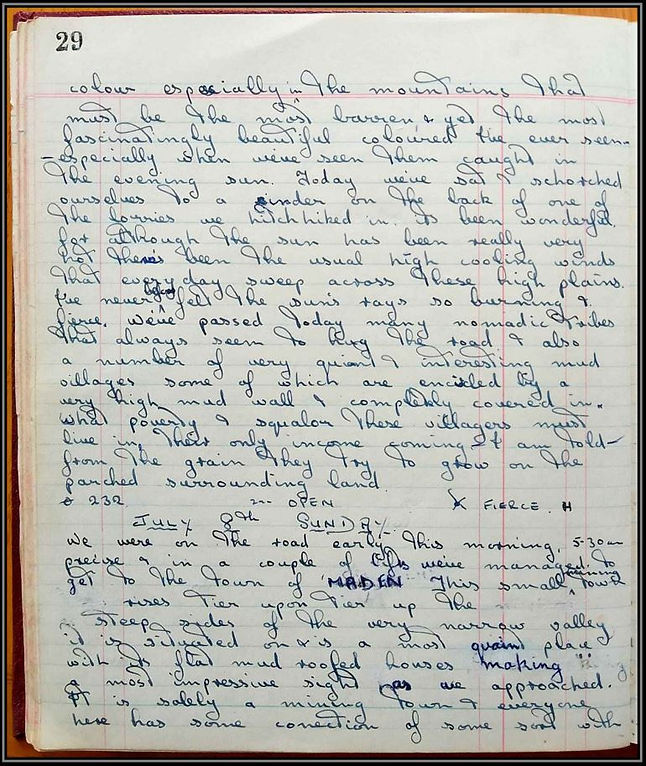 29
colour especially in the mountains that
must be the most barren & yet the most
fascinatingly beautiful coloured I've ever seen -
- especially when we've seen them caught in
the evening sun. Today we've sat & schorched
ourselves to a sinder on the back of one of
the lorries we hitchhiked in. Its been wonderful
for although the sun has been really very
hot theres been the usual high cooling winds
that everyday sweep across these high plains.
I've never before felt the sun's rays so burning &
fierce. We've passed today many nomadic tribes
that always seem to hug the road & also
a number of very quaint & interesting mud
villages some of which are encircled by a
very high mud wall & completely covered in.
What poverty & squalor these villagers must
live in, their only income coming I am told -
from the grain they try to grow on the
parched surrounding land.
232 OPEN FIERCE. H
JULY 8th SUNDAY
We were on the road early this morning, 5-30am
precise & in a couple of lifts we've managed to
get to the town of MADEN. This small mining town
rises tier upon tier up the
steep sides of the very narrow valley
it is situated on & is a most quaint place
with its flat mud roofed houses making
a most impressive sight as we approached.
It is solely a mining town & everyone
here has some conection of some sort with